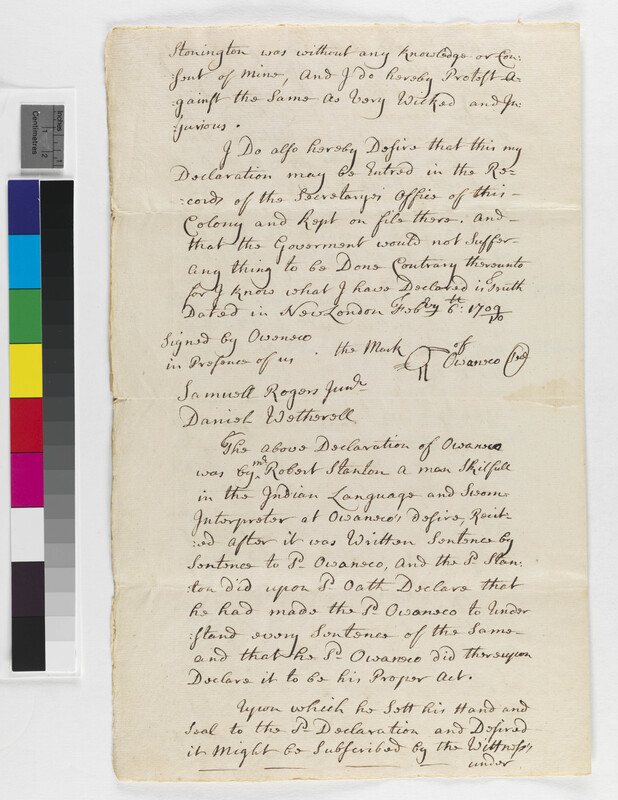 Stonington was without any Knowledge or Con:
:sent of Mine, And I do hereby Protest A-
:gainst the Same As Very Wicked and In-
:jurious.
I Do also hereby Desire that this my
Declaration may be Entred in the Re-
:cords of the Secretaryes Office of this
Colony and Kept on file there. And
that the Goverment would not Suffer
any thing to be Done Contrary thereunto
for I know what I have Declared is Truth
Dated in New London Febry 6th: 1709/10
Signed by Oweneco
in Presence of us . the Mark of Owaneco
Samuell Rogers Junr
Daniel Wetherell
The above Declaration of Owaneco
was by mr Robert Stanton a man Skilfull
in the Indian Language and Sworn
Interpreter at Owaneco's Desire, Recit-
:ed after it was Written Sentence by
Sentence to Sd Owaneco, and the Sd Stan:
:ton did upon Sd Oath Declare that
he had made the Sd Owaneco to Under
stand every Sentence of the Same
and that he Sd Owaneco did thereupon
Declare it to be his Proper Act.
Upon which he Sett his Hand and
Seal to the Sd Declaration and Desired
it Might be Subscribed by the Wittness's
under
Centimetres
Inches
1
2
1